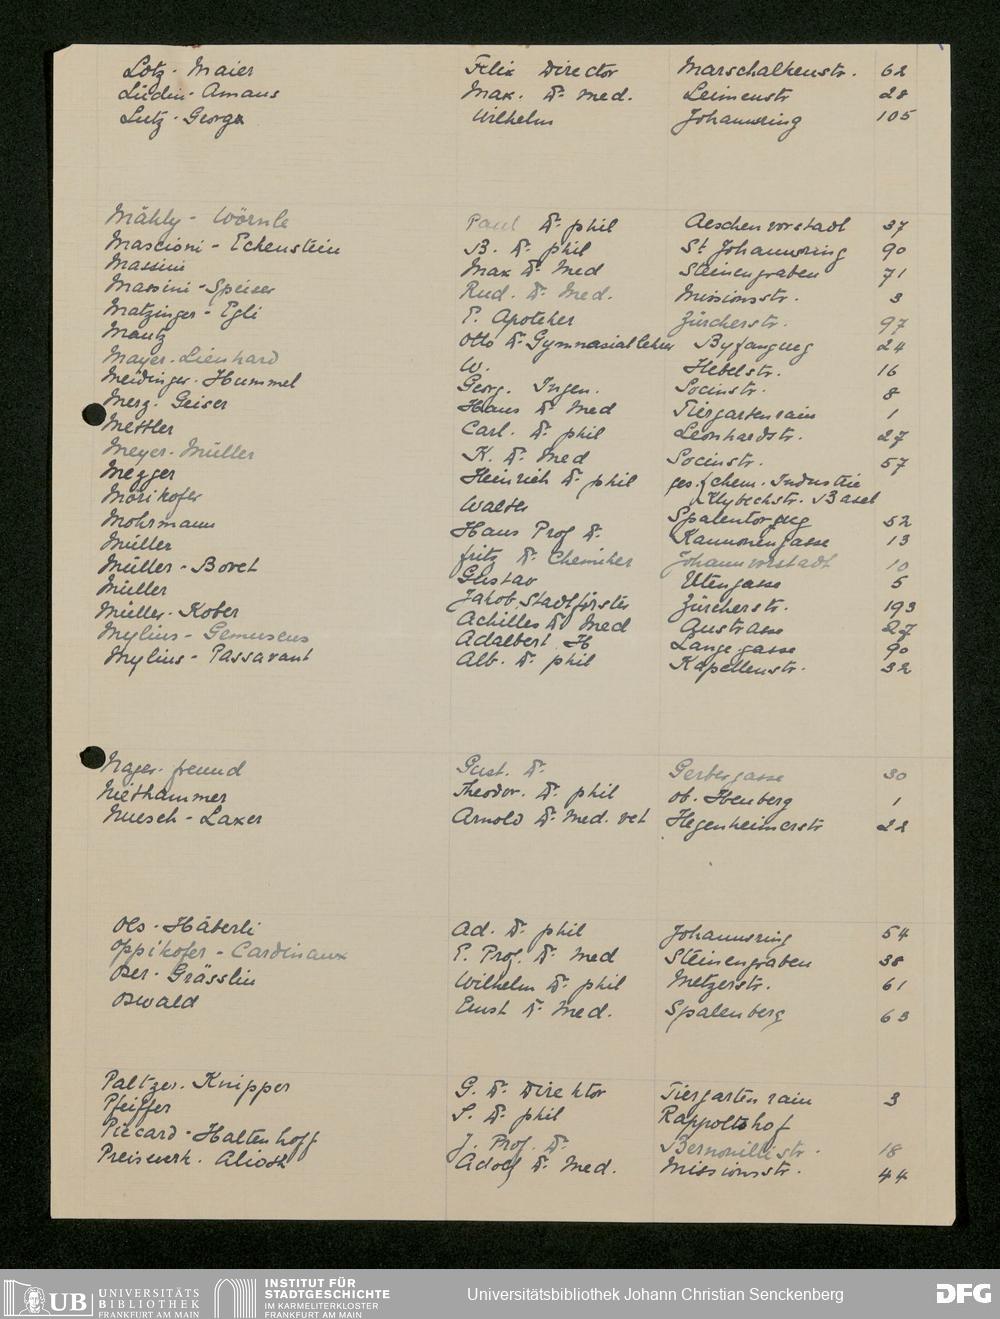 Lotz - Maier Felix Director Marschalkenstr. 62
Lüdin - Amans Max. Dr. med. Leimenstr 28
Lutz - George Wilhelm Johannsring 105
Mähly - Wörnle Paul Dr. phil Aeschenvorstadt 37
Mascioni - Eckenstein B. Dr. phil St Johannsring 90
Massini Max Dr. Med Steinengraben 71
Massini - Speiser Rud. Dr. Med. Missionsstr. 3
Matzinger - Egli E. Apoteker Zürcherstr. 97
Mautz Otto Dr. Gymnasiallehrer Byfangweg 24
Mayer - Lienhard W. Hebelstr. 16
Meidinger - Hummel Georg. Ingen. Socinstr. 8
Merz - Geiser Hans Dr. Med Tiergartenrain 1
Mettler Carl. Dr. phil Leonhardstr. 27
Meyer - Müller K. Dr. Med Socinstr. 57
Mezger Heinrich Dr. phil ges. f. chem. Industrie
Klybeckstr. Basel
Mörikofer Walter Spalentorweg 52
Mohrmann Hans Prof Dr. Kannonengasse 13
Müller fritz Dr. Chemiker Johannvorstadt 10
Müller - Bovet Gustav Utengasse 5
Müller Jakob. Stadtförster Zürcherstr. 193
Müller - Kober Achilles Dr. Med Austrasse 27
Mylius - Gemuseus Adalbert. H Lange gasse 90
Mylius - Passavant Alb. Dr. phil Kapellenstr. 32
Nager - freund Gust. Dr. Gerbergasse 30
Niethammer Theodor. Dr. phil ob. Heuberg 1
Nuesch - Laxer Arnold Dr. Med. vet Hegenheimerstr 22
Oes - Häberli Ad. Dr. phil Johannsring 54
Oppikofer - Cardinaux E. Prof. Dr. Med Steinengraben 38
Oser - Grässlin Wilhelm Dr. phil Metzerstr. 61
Oswald Ernst Dr. Med. Spalenberg 63
Paltzer - Knipper G. Dr. Direktor Tiergartenrain 3
Pfeiffer S. Dr. phil Rappoltshof
Piccard - Haltenhoff J. Prof. Dr. Bernouillistr. 18
Preiswerk - Alioth Adolf Dr. Med. Missionsstr. 44
UB UNIVERSITÄTS
BIBLIOTHEK
FRANKFURT AM MAIN
INSTITUT FÜR
STADTGESCHICHTE
IM KARMELITERKLOSTER
FRANKFURT AM MAIN
Universitätsbibliothek Johann Christian Senckenberg
DFG